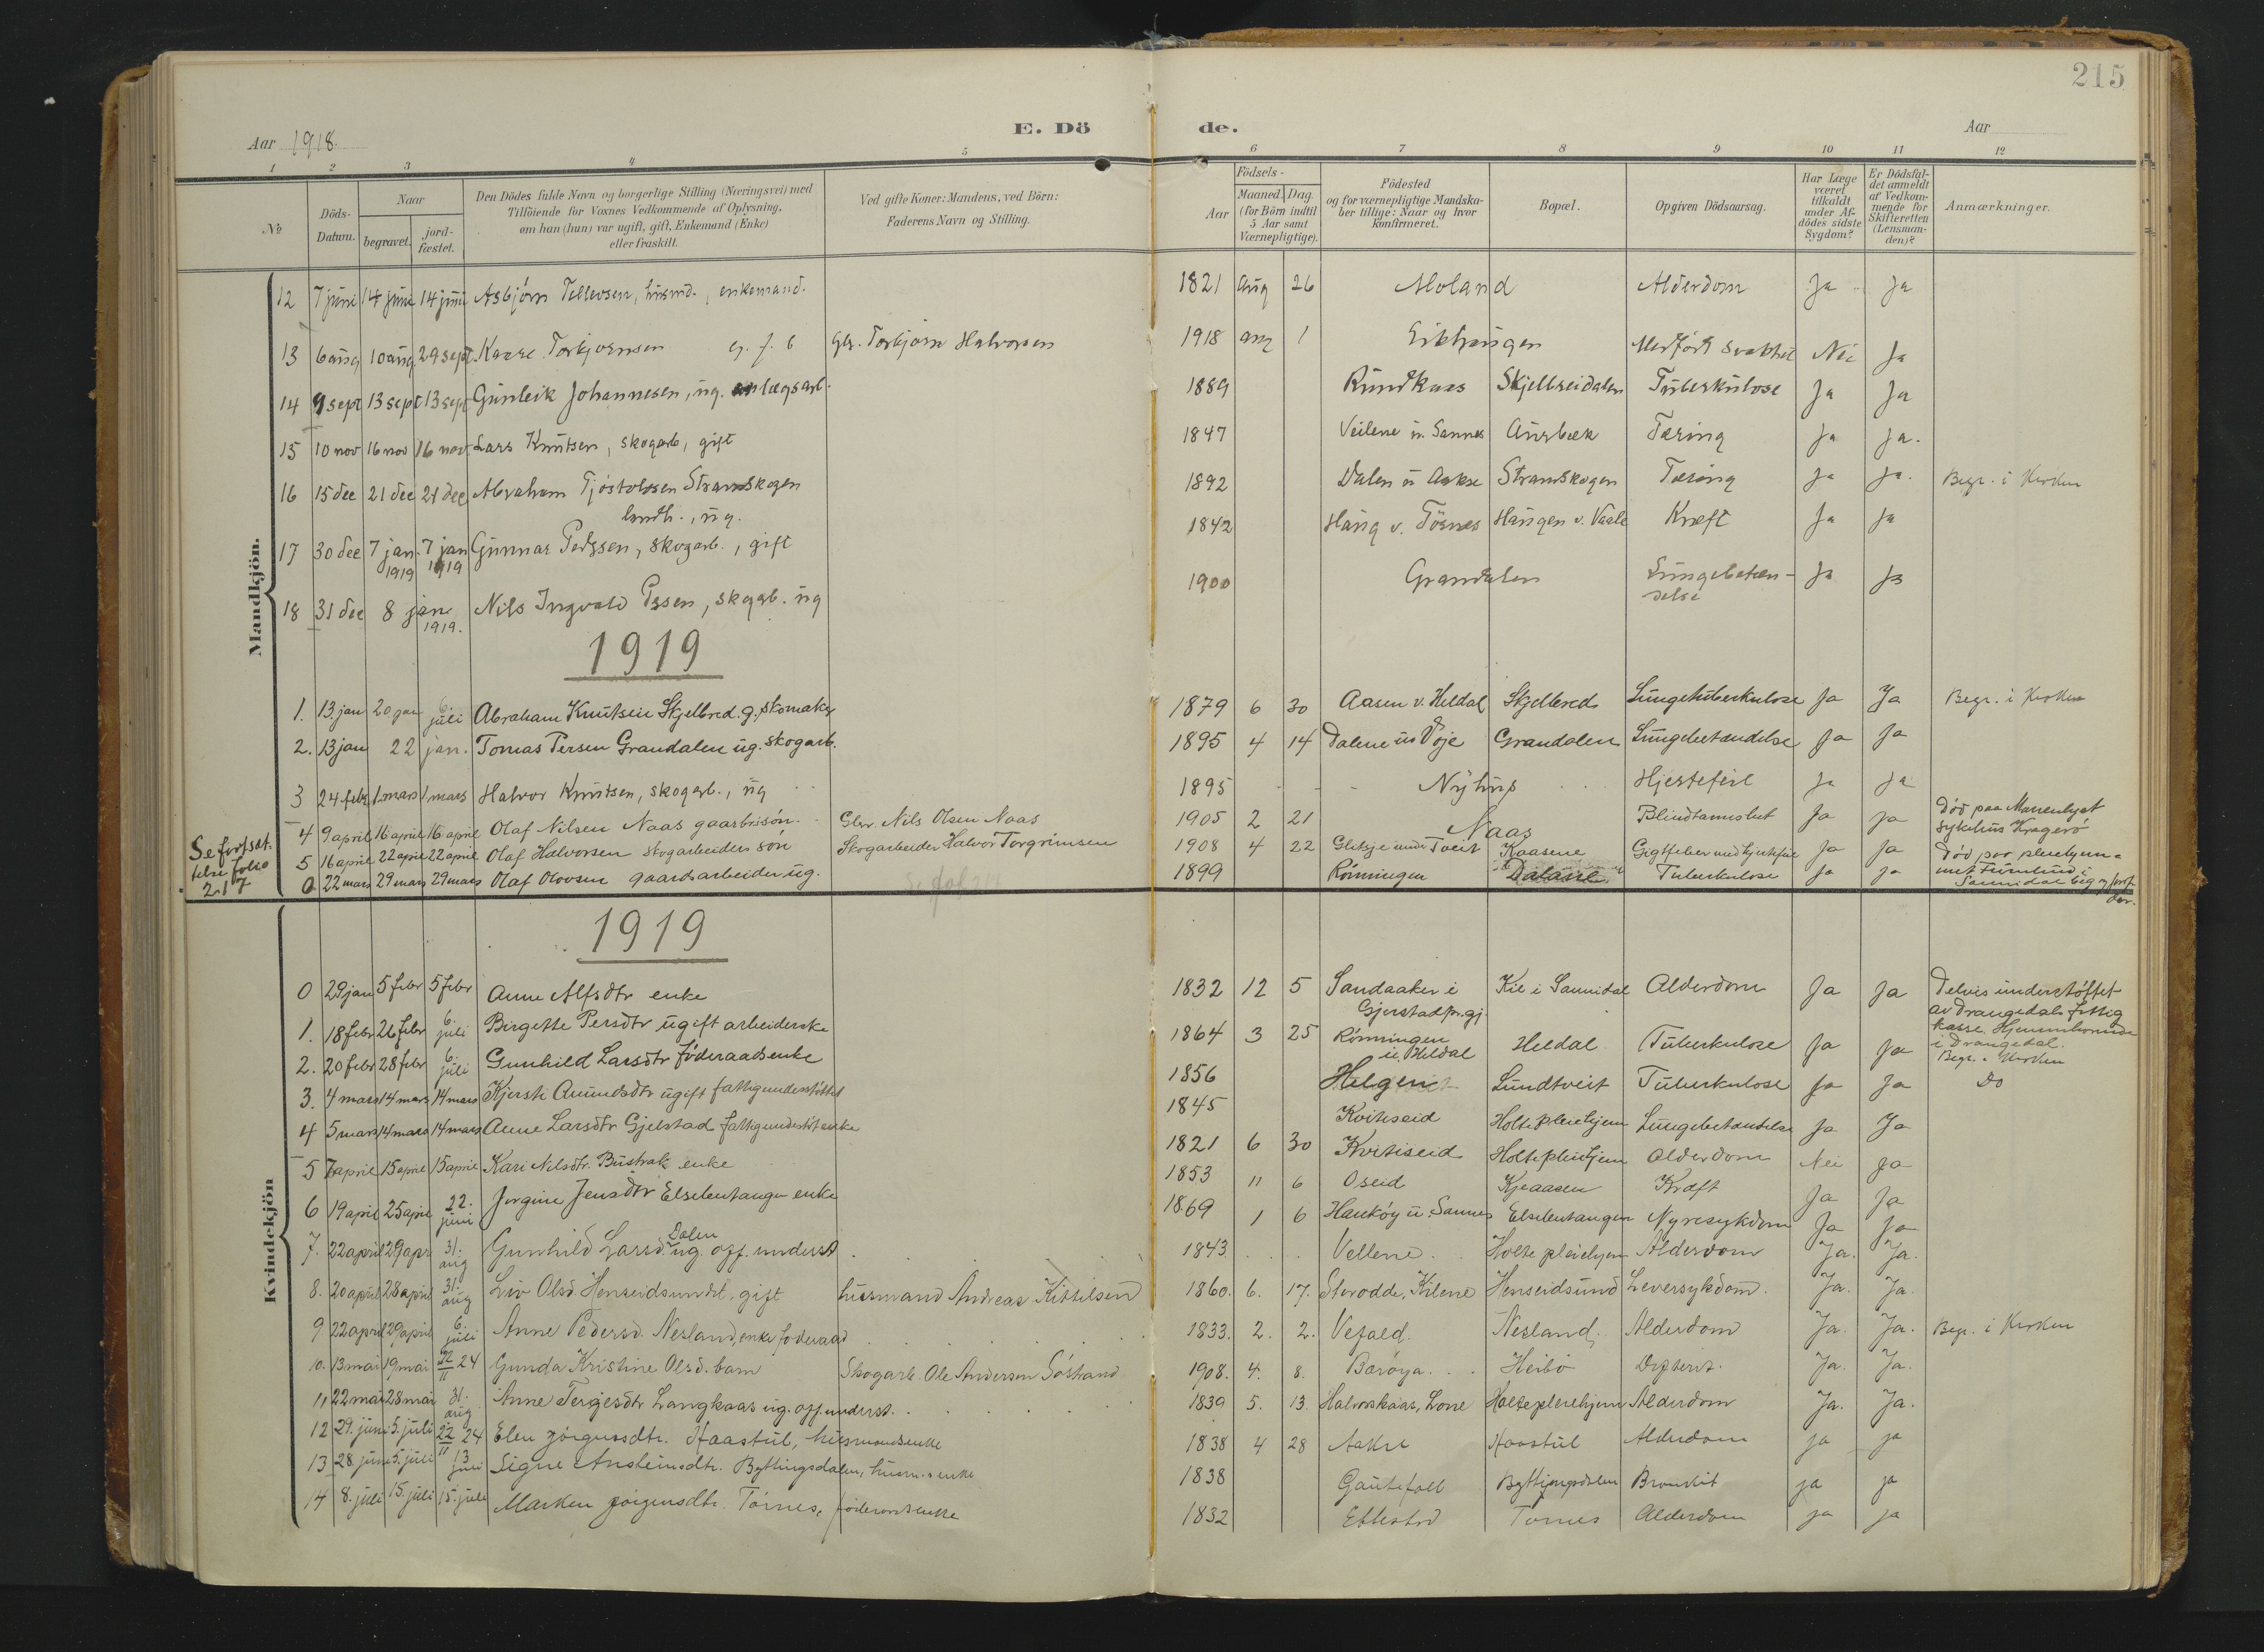 215
E. Dö de.
Aar 1918.
Aar
1 2 3 4 5 6 7 8 9 10 11 12
№
Döds-Datum.
Naar
begravet.
jord-fæstet.
Den Dödes fulde Navn og borgerlige Stilling (Næringsvei) med
Tilföiende for Voxnes Vedkommende af Oplysning,
om han (hun) var ugift, gift, Enkemand (Enke)
eller fraskilt.
Ved gifte Koner: Mandens, ved Börn:
Faderens Navn og Stilling.
Födsels-
Aar
Maaned. Dag.
(for Börn indtil
5 Aar samt
Værnepligtige).
Födested
og for værnepligtige Mandska-
ber tillige: Naar og hvor
konfirmeret.
Bopæl.
Opgiven Dödsaarsag.
Har Læge
været
tilkaldt
under Af-
dödes sidste
Sygdom?
Er Dödsfal-
det anmeldt
af Vedkom-
mende for
Skifteretten
(Lensman-
den)?
Anmærkninger.
Mandkjön.
12 7 juni 14 juni 14 juni Asbjörn Tellevsen, husmd., enkemand. 1821 aug 26 Moland Alderdom Ja Ja
13 6 aug 10 aug 29 sept. Kaare Torbjørnsen e. f. 6 Gbr. Torbjørn Halvorsen 1918 aug 1 Eikhaugen Medfört svakhet Nei Ja
14 9 sept 13 sept 13 sept Gunleik Johannesen, ug. anlægsarb. 1889 Rundkaas Skjelbreidalen Tuberkulose Ja Ja
15 10 nov 16 nov 16 nov Lars Knutsen, skogarb, gift 1847 Veilene u. Sannes Aurbæk Tæring Ja Ja.
16 15 dec 21 dec 21 dec Abraham Tjostolvsen Stramskogen 1892 Dalen u Aakre Stramskogen Tæring Ja Ja. Begr. i Kirken
landh., ug.
17 30 dec 7 jan. 1919 7 jan 1919 Gunnar Pedersen, skogarb., gift 1842 Haug v. Törnes Haugen v. Vaale Kræft Ja Ja
18 31 dec 8 jan 1919. Nils Ingvald Persen, skogarb. ug 1900 Grandalen Lungebetæn-
delse Ja Ja
1919
1. 13. jan 20 jan 6. juli Abraham Knutsen Skjelbred. g. skomaker 1879 6 30 Aasen v. Heldal Skjelbred Lungetuberkulose Ja Ja Begr. i Kirken
2. 13 jan 22 jan. Tomas Persen Grandalen ug. skogarb. 1895 4 14 Dalene u Voje Grandalen Lungebetændelse Ja Ja
3 24 febr 1. mars 1. mars Halvor Knutsen, skogarb., ug 1895 Nyhus Hjertefeil Ja Ja
4 9 april 16 april 16 april Olaf Nilsen Naas gaarbrisön. Gbr. Nils Olsen Naas 1905 2 21 Naas Blindtarmsbet Ja Ja Död paa Marienlyst
sykehus Kragerö
5 16 april 22 april 22 april Olaf Halvorsen skogarbeiders sön Skogarbeider Halvor Torgrimsen 1908 4 22 under Tveit Kaasene Gigtfeber med hjertefeil Ja Ja
0 22 mars 29 mars 29 mars Olaf Olovsen gaardsarbeider ug. 1899 Rönningen Dalane Tuberkulose Ja Ja Död paa pleiehjem-
met Furulund i
Sannidal beg og jordf
der.
Se fortsæt.
telse folio
217
Se fol 217
Kvindekjön
1919
0 29 jan 5 febr 5 febr Anne Alfsdtr enke 1832 12 5 Sandaaker i
Gjerstad pr.gj. Kil i Sannidal Alderdom Ja Ja Delvis understöttet
av Drangedals fattig
kasse. Hjemmhörende
i Drangedal.
1. 18 febr 26 febr 6. juli Birgette Persdtr ugift arbeiderske 1864 3 25 Rönningen
u. Heldal Heldal Tuberkulose Ja Ja Begr. i Kirken
2. 20 febr 28 febr 6. juli Gunhild Larsdtr föderaadsenke 1856 Helgen Lundtveit Tuberkulose Ja Ja Do
3. 4 mars 14 mars 14 mars Kjersti Amundsdtr ugift fattigunderstöttet 1845 Kviteseid Holte pleiehjem Lungebetændelse Ja Ja
4 5 mars 14 mars 14 mars Anne Larsdtr Gjelstad fattigunderstöt enke 1821 6 30 Kviteseid Holte pleiehjem Alderdom Nei Ja
5 7 april 15 april 15 april Kari Nilsdtr. Bustrak enke 1853 11 6 Oseid Kjeaasen Kræft Ja Ja
6 19 april 25 april 22. juni Jorgine Jensdtr Elsebutangen enke 1869 1 6 Hauköy u. Sannes Elsebutangen Nyresykdom Ja Ja
7. 22 april 29 apr 31. aug Gunhild Larsd. Dalen ug. off. underst. 1843. Vellene Holte pleiehjem Alderdom Ja. Ja.
8. 20 april 28 april 31. aug Liv Olsd. Henseidsundet, gift husmand Andreas Kittilsen 1860. 6. 17. Storodde, Kilene Henseidsund Leversykdom. Ja. Ja.
9 22 april 29 april 6. juli Anne Pedersd. Nesland, enke föderaad 1833. 2. 2. Vefald. Nesland. Alderdom Ja. Ja. Begr. i Kirken
10. 13 mai 19 mai 22/11 24 Gunda Kristine Olsd. barn Skogarb. Ole Andersen Söstrand 1908. 4. 8. Baröya Heibö Difterit. Ja. Ja.
11 22 mai 28 mai 31. aug Anne Tergesdtr Langkaas ug. off. underst. 1839 5. 13. Halvorskaas, Lone Holte pleiehjem Alderdom Ja. Ja.
12 29. juni 5. juli 22/11 24 Elen Jörgensdtr. Haastul, husmandsenke 1838 4 28 Aakre Haastul Alderdom ja ja
13 28 juni 5. juli 13 juli Signe Ansteinsdtr. Byttingsdalen, husm.s enke 1838 Gautefall Byttingsdalen Bronkit ja ja
14 8. juli 15. juli 15. juli Marken Jörgensdtr. Törnes, föderaadsenke 1832 Ettestad Tornes Alderdom ja ja